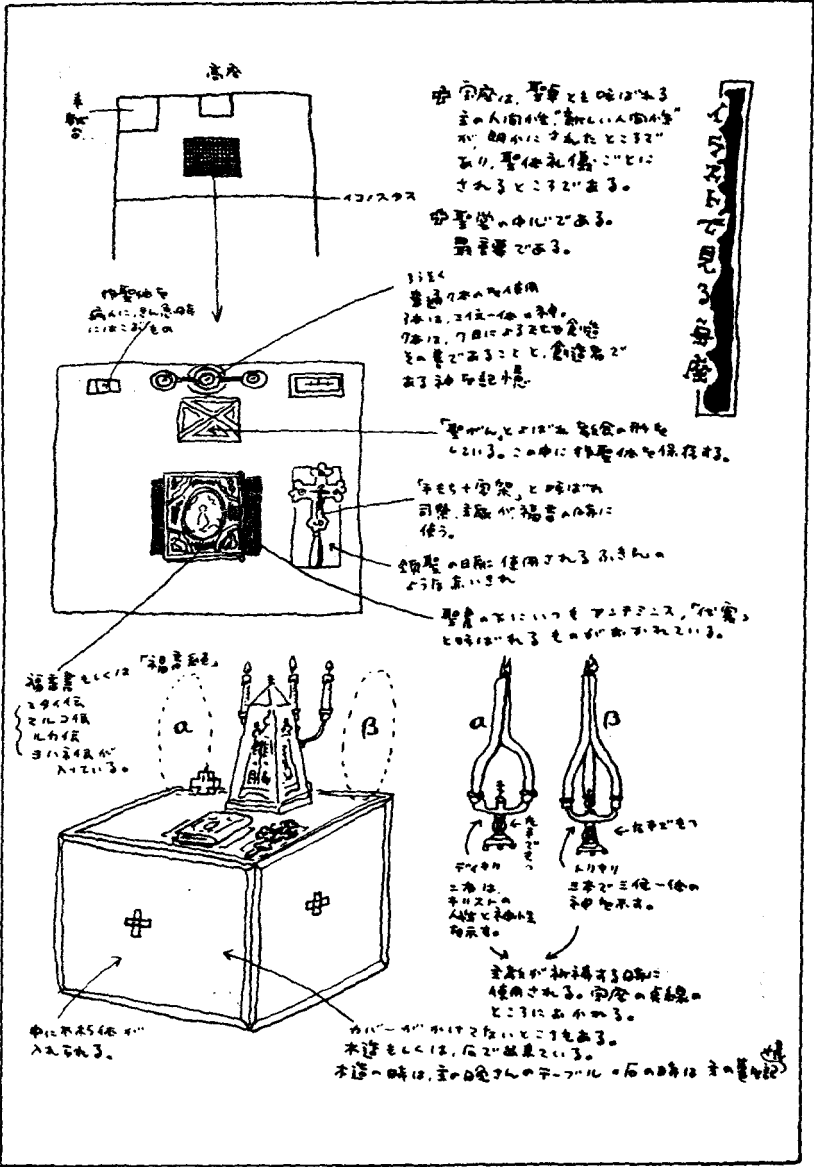 高座
イコノスタス
宝座は、聖卓とも呼ばれる
主の人間性、"新しい人間性"
が、明かにされたところで
あり、聖体礼儀ごとに
されるところである。
聖堂の中心である。
最重要である。
ろうそく
普通7本のを使用
3本は、三位一体の神。
7本は、7日による
その業であることと、創造者で
ある神を記憶
病人に、きん急時
にはこぶもの
「聖がん」とよばれ の形を
している。この中に 聖体を保存する。
「手もち十字架」と呼ばれ
司祭、主教が、祝福の時に
使う。
領聖の時に使用されるふきんの
ような赤いきれ
聖書の下にいつもアンチミンス、「代案」
と呼ばれるものがおかれている。
福音書もしくは「福音経」
マタイ伝
マルコ伝
ルカ伝
ヨハネ伝が
入っている。
α
β
α
β
左手でもつ
右手でもつ
ディキリ
二本は、
キリストの
人性と神性
を示す。
トリキリ
三本で三位一体の
神を示す。
主教が祈祷する時に
使用される。宝座の
ところにおかれる。
中に不朽体が
入れられる。
カバーがかけてないところもある。
木造もしくは、石で出来ている。
木造の時は、主の晩さんのテーブル・石の時は 主の墓を記憶